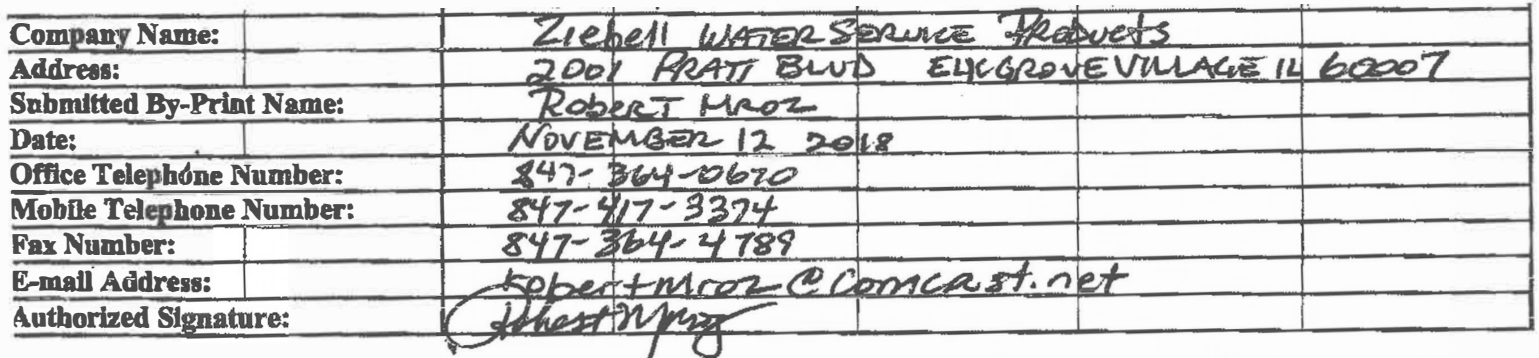 Company Name: Ziebell WATER SERVICE PRODUCTS
Address: 2001 PRATT BLVD ELK GROVE VILLAGE IL 60007
Submitted By-Print Name: ROBERT MROZ
Date: NOVEMBER 12 2018
Office Telephone Number: 847-364-0670
Mobile Telephone Number: 847-417-3374
Fax Number: 847-364-4789
E-mail Address: robertmroz@comcast.net
Authorized Signature: Robert Mroz